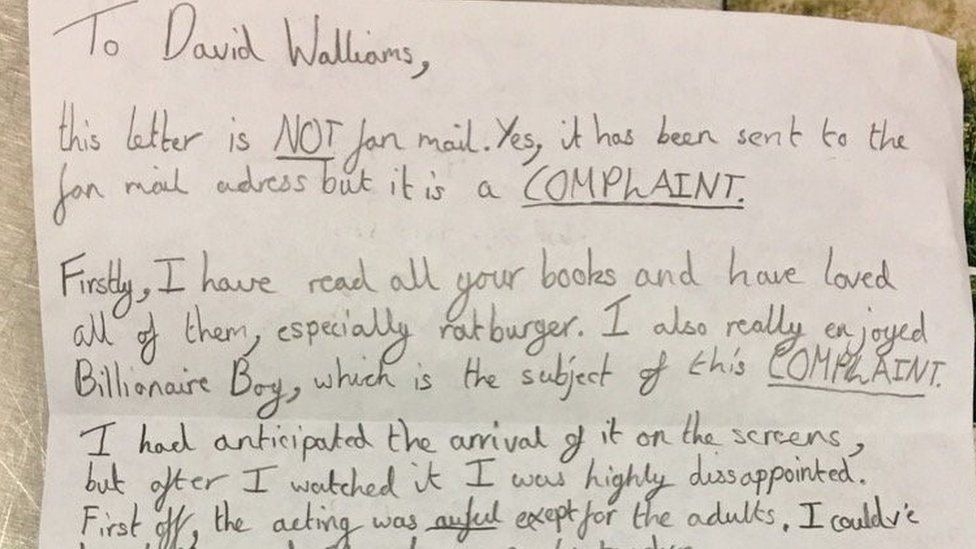 To David Walliams,
this letter is NOT fan mail. Yes, it has been sent to the
fan mail adress but it is a COMPLAINT.
Firstly, I have read all your books and have loved
all of them, especially ratburger. I also really enjoyed
Billionaire Boy, which is the subject of this COMPLAINT.
I had anticipated the arrival of it on the screens,
but after I watched it I was highly dissappointed.
First off, the acting was awful exept for the adults. I couldv'e